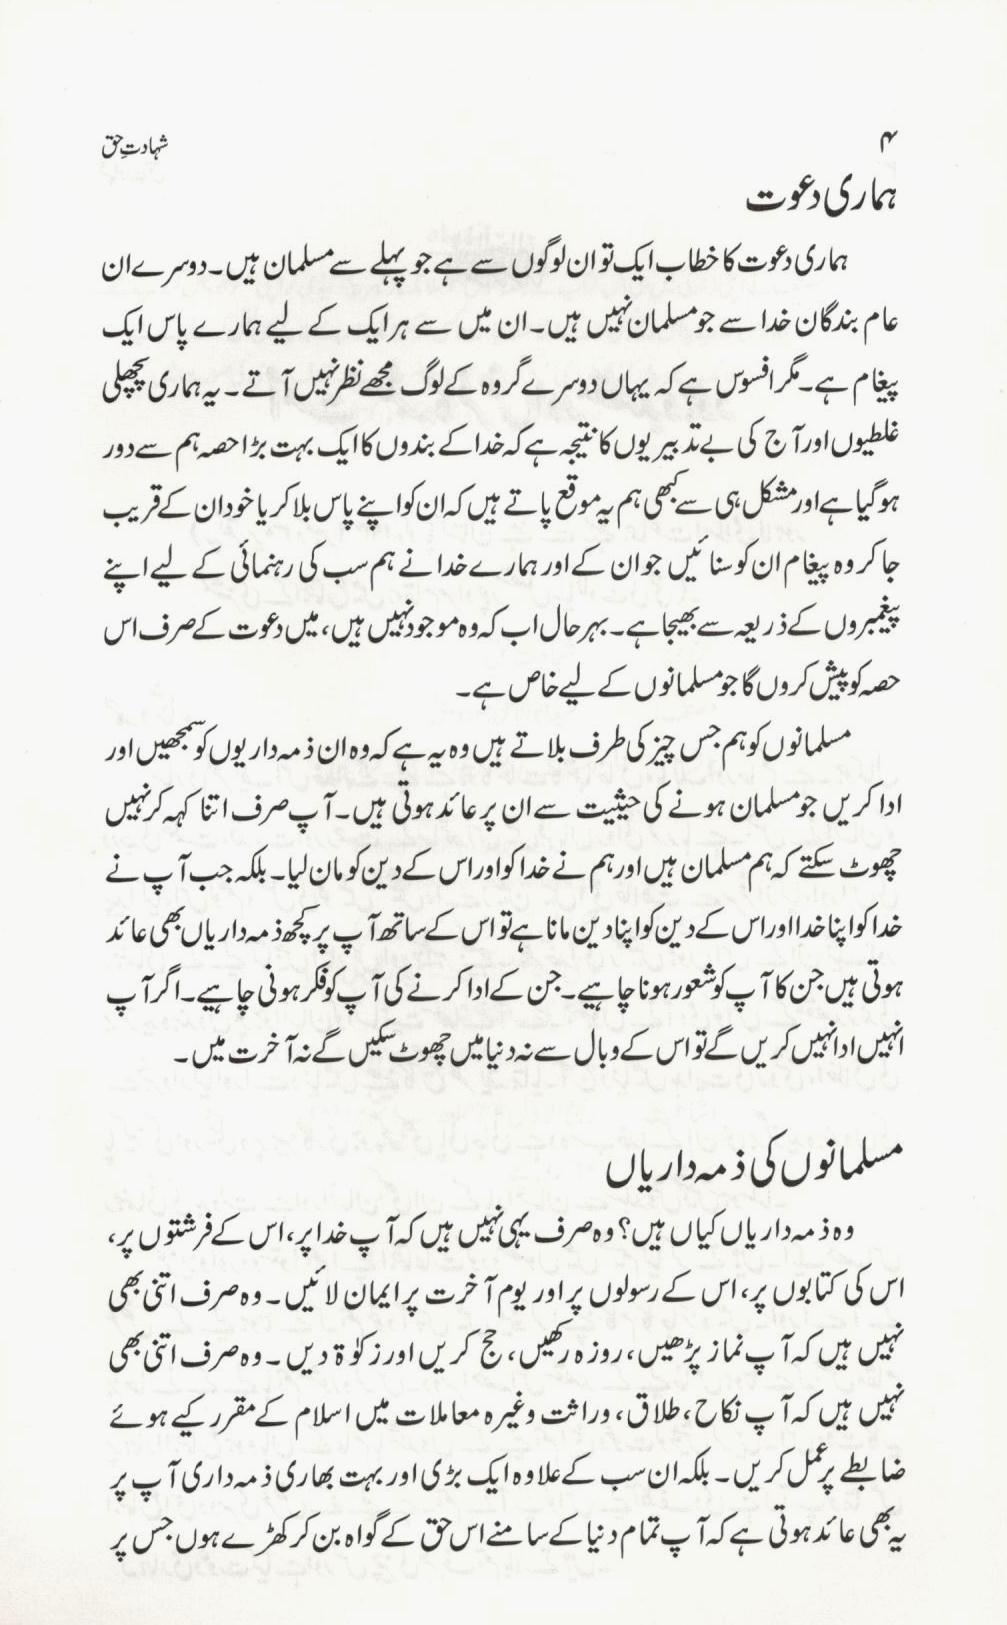 ۴
شہادتِ حق
ہماری دعوت
ہماری دعوت کا خطاب ایک تو ان لوگوں سے ہے جو پہلے سے مسلمان ہیں۔ دوسرے ان
عام بندگان خدا سے جو مسلمان نہیں ہیں۔ ان میں سے ہر ایک کے لیے ہمارے پاس ایک
پیغام ہے۔ مگر افسوس ہے کہ یہاں دوسرے گروہ کے لوگ مجھے نظر نہیں آتے۔ یہ ہماری پچھلی
غلطیوں اور آج کی بے تدبیریوں کا نتیجہ ہے کہ خدا کے بندوں کا ایک بہت بڑا حصہ ہم سے دور
ہو گیا ہے اور مشکل ہی سے کبھی ہم یہ موقع پاتے ہیں کہ ان کو اپنے پاس بلا کر یا خود ان کے قریب
جا کر وہ پیغام ان کو سنائیں جو ان کے اور ہمارے خدا نے ہم سب کی رہنمائی کے لیے اپنے
پیغمبروں کے ذریعہ سے بھیجا ہے۔ بہرحال اب کہ وہ موجود نہیں ہیں، میں دعوت کے صرف اس
حصہ کو پیش کروں گا جو مسلمانوں کے لیے خاص ہے۔
مسلمانوں کو ہم جس چیز کی طرف بلاتے ہیں وہ یہ ہے کہ وہ ان ذمہ داریوں کو سمجھیں اور
ادا کریں جو مسلمان ہونے کی حیثیت سے ان پر عائد ہوتی ہیں۔ آپ صرف اتنا کہہ کر نہیں
چھوٹ سکتے کہ ہم مسلمان ہیں اور ہم نے خدا کو اور اس کے دین کو مان لیا۔ بلکہ جب آپ نے
خدا کو اپنا خدا اور اس کے دین کو اپنا دین مانا ہے تو اس کے ساتھ آپ پر کچھ ذمہ داریاں بھی عائد
ہوتی ہیں جن کا آپ کو شعور ہونا چاہیے۔ جن کے ادا کرنے کی آپ کو فکر ہونی چاہیے۔ اگر آپ
انہیں ادا نہیں کریں گے تو اس کے وبال سے نہ دنیا میں چھوٹ سکیں گے نہ آخرت میں۔
مسلمانوں کی ذمہ داریاں
وہ ذمہ داریاں کیاں ہیں؟ وہ صرف یہی نہیں ہیں کہ آپ خدا پر، اس کے فرشتوں پر،
اس کی کتابوں پر، اس کے رسولوں پر اور یوم آخرت پر ایمان لائیں۔ وہ صرف اتنی بھی
نہیں ہیں کہ آپ نماز پڑھیں، روزہ رکھیں، حج کریں اور زکوٰۃ دیں۔ وہ صرف اتنی بھی
نہیں ہیں کہ آپ نکاح، طلاق، وراثت وغیرہ معاملات میں اسلام کے مقرر کیے ہوئے
ضابطے پر عمل کریں۔ بلکہ ان سب کے علاوہ ایک بڑی اور بہت بھاری ذمہ داری آپ پر
یہ بھی عائد ہوتی ہے کہ آپ تمام دنیا کے سامنے اس حق کے گواہ بن کر کھڑے ہوں جس پر